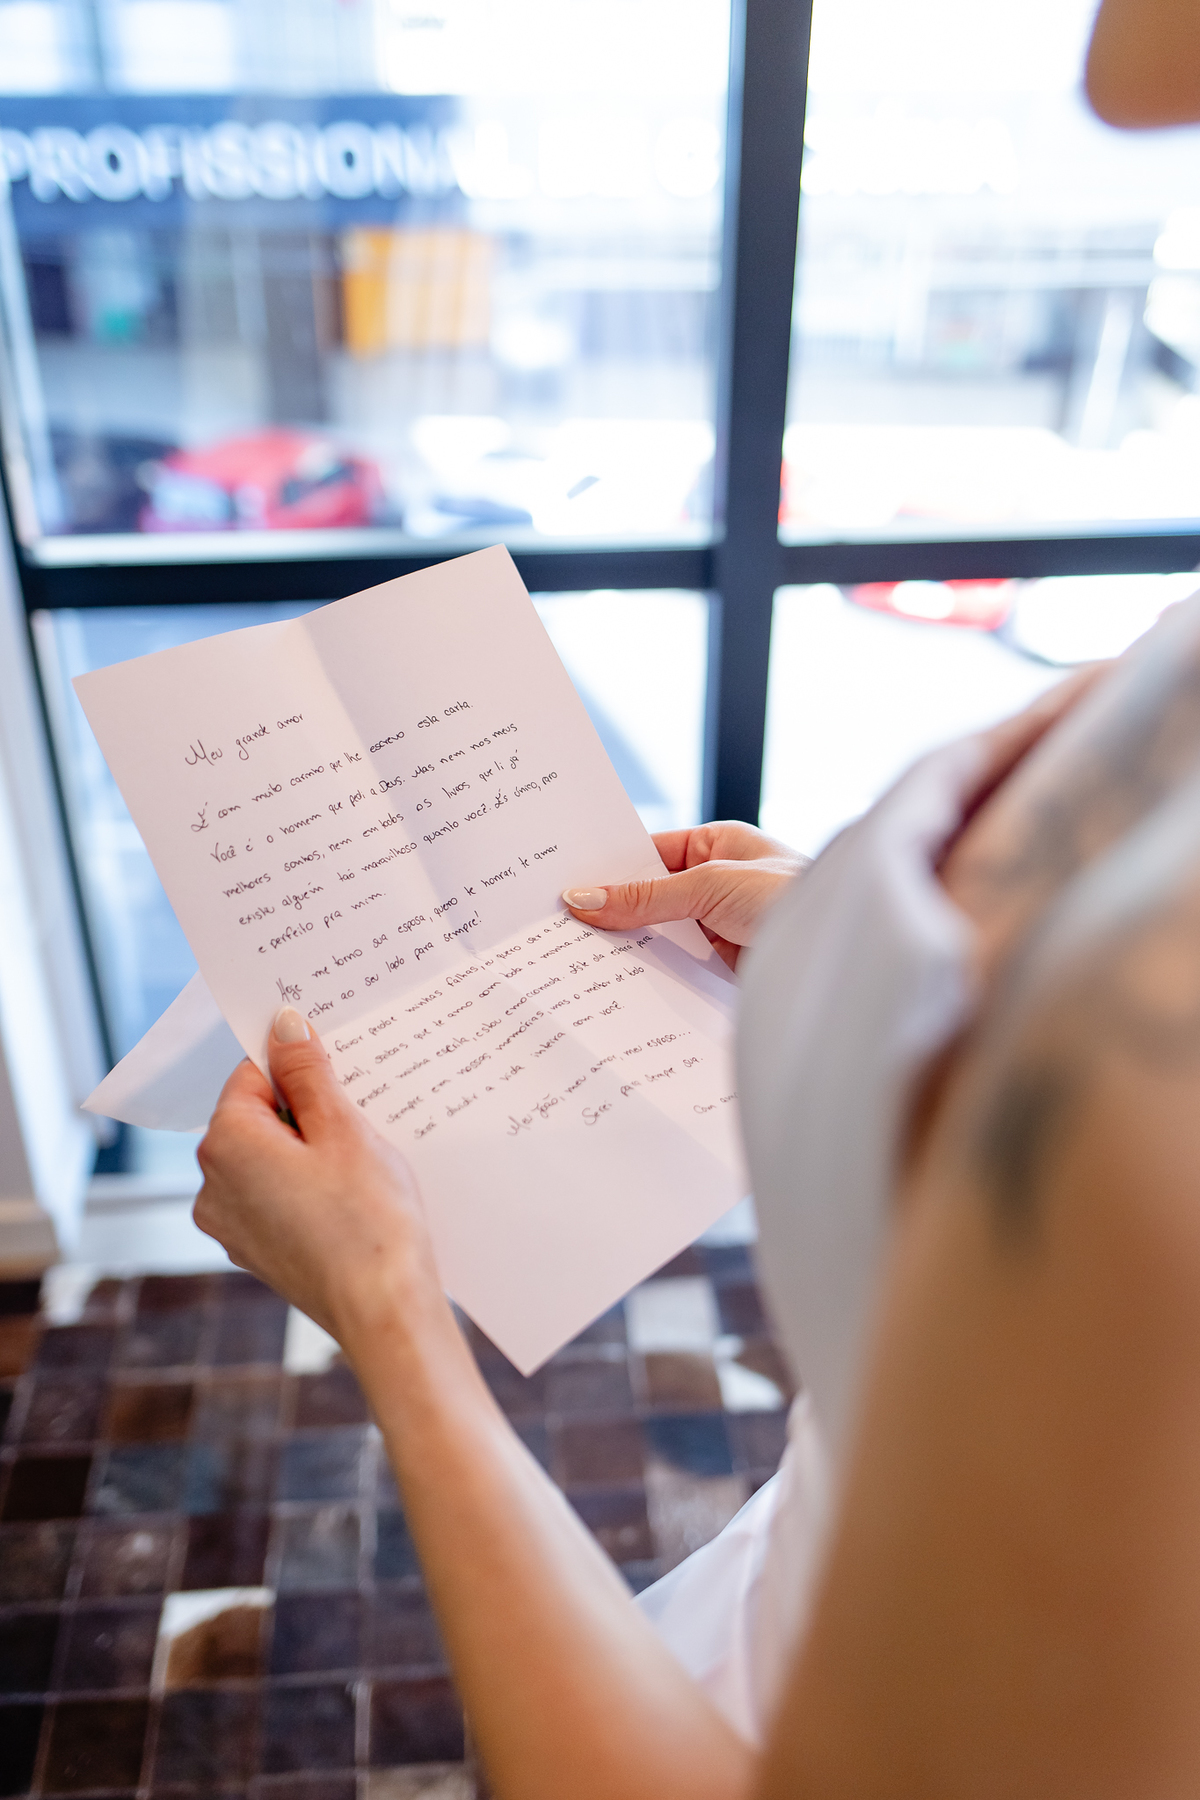 PROFISSIONAL
Meu grande amor
É com muito carinho que lhe escrevo esta carta.
Você é o homem que pedi a Deus. Mas nem nos meus
melhores sonhos, nem em todos os livros que li já
existe alguém tão maravilhoso quanto você. És único, raro
e perfeito pra mim.
Hoje me torno sua esposa, quero te honrar, te amar
estar ao seu lado para sempre!
favor perdoe minhas falhas, eu quero ser a sua
ideal, saibas que te amo com toda a minha vida
perdoe minha escrita, estou emocionada. Este dia estará para
sempre em nossas memórias, mas o melhor de todo
será dividir a vida inteira com você.
Meu João, meu amor, meu esposo...
Serei para sempre sua.
Com